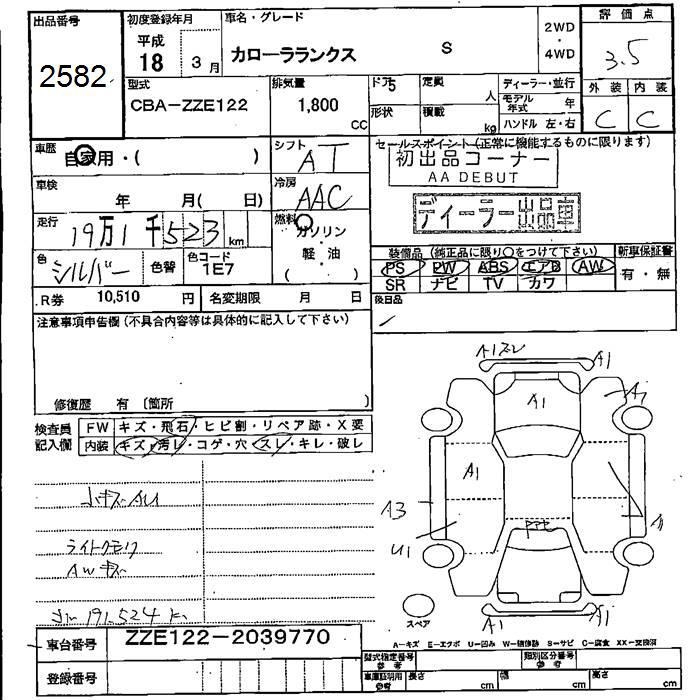 出品番号
2582
初度登録年月
平成
18 3月
車名・グレード
カローラランクス S
2WD
・
4WD
評価点
3.5
型式
CBA-ZZE122
排気量
1,800
CC
ドア5
形状
定員
人
積載
kg
ディーラー・並行
モデル年式 年
ハンドル 左・右
外装 内装
C C
車歴
自家用・( )
シフト
AT
セールスポイント(正常に機能するものに限ります)
初出品コーナー
AA DEBUT
ディーラー出品車
車検
年 月( 日)
冷房
AAC
走行
19万1千523km
燃料
ガソリン
軽・油
( )
色
シルバー
色替
色コード
1E7
装備品(純正品に限り○をつけて下さい)
PS PW ABS エアB AW
SR ナビ TV カワ
新車保証書
有・無
R券 10,510 円
名変期限 月 日
後日品
注意事項申告欄(不具合内容等は具体的に記入して下さい)
修復歴 有 〔箇所 〕
検査員
記入欄
FW キズ・飛石・ヒビ割・リペア跡・X要
内装 キズ・汚レ・コゲ・穴・スレ・キレ・破レ
ライトクモリ
AWキズ
191.524 k
A1ズレ
A1
A1
A1
A3
U1
A1
A1
スペア
A-キズ E-エクボ U-凹み W-補修跡 S-サビ C-腐食 XX-交換済
車台番号 ZZE122-2039770
登録番号
型式指定番号
参考
類別区分番号
参考
車庫証明用
参考
長さ cm
幅 cm
高さ cm